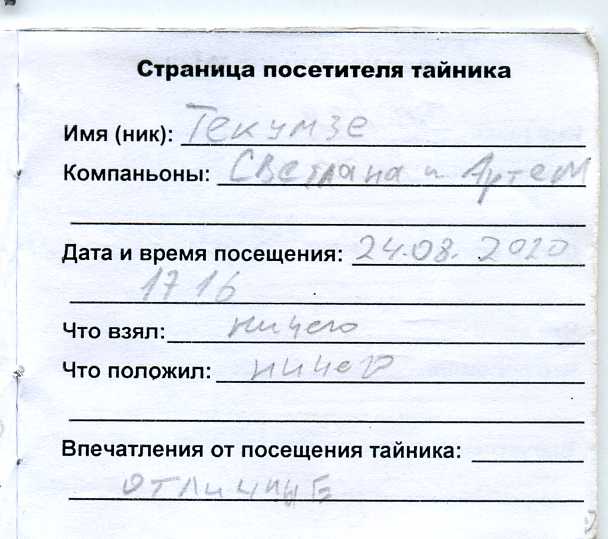 Страница посетителя тайника
Имя (ник): Текумзе
Компаньоны: Светлана и Артем
Дата и время посещения: 24.08.2020
17 16
Что взял: ничего
Что положил: ничего
Впечатления от посещения тайника:
отличные